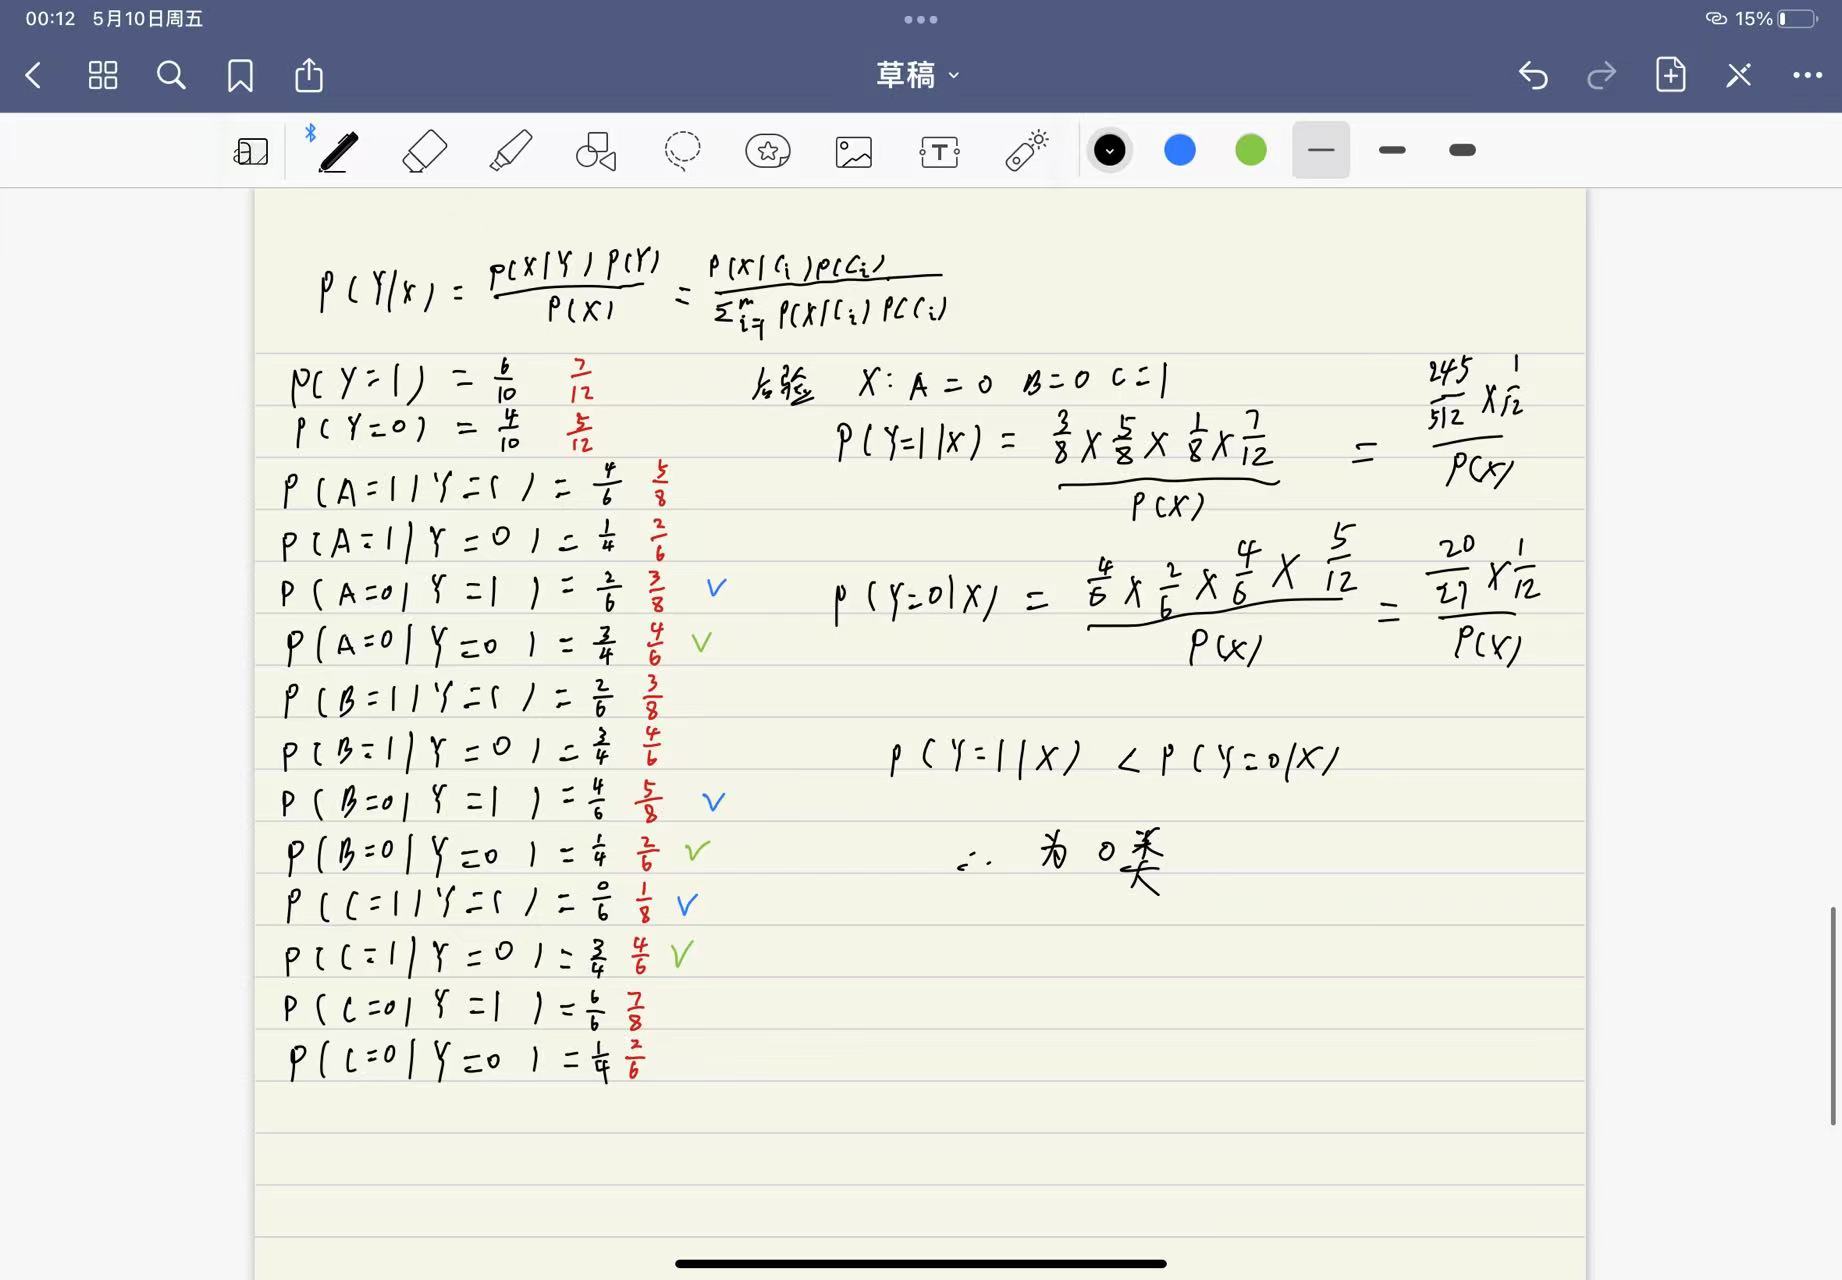 00:12 5月10日周五
15%
草稿
P(Y|X) = P(X|Y)P(Y) / P(X) = P(X|Ci)P(Ci) / Σ^m_i=1 P(X|Ci)P(Ci)
P(Y=1) = 6/10 7/12
P(Y=0) = 4/10 5/12
P(A=1|Y=1) = 4/6 5/8
P(A=1|Y=0) = 1/4 2/6
P(A=0|Y=1) = 2/6 3/8 ✓
P(A=0|Y=0) = 3/4 4/6 ✓
P(B=1|Y=1) = 2/6 3/8
P(B=1|Y=0) = 3/4 4/6
P(B=0|Y=1) = 4/6 5/8 ✓
P(B=0|Y=0) = 1/4 2/6 ✓
P(C=1|Y=1) = 0/6 1/8 ✓
P(C=1|Y=0) = 3/4 4/6 ✓
P(C=0|Y=1) = 6/6 7/8
P(C=0|Y=0) = 1/4 2/6
后验 X: A=0 B=0 C=1
P(Y=1|X) = 3/8 × 5/8 × 1/8 × 7/12 / P(X) = 245/512 × 1/12 / P(X)
P(Y=0|X) = 4/6 × 2/6 × 4/6 × 5/12 / P(X) = 20/27 × 1/12 / P(X)
P(Y=1|X) < P(Y=0|X)
∴ 为 0 类